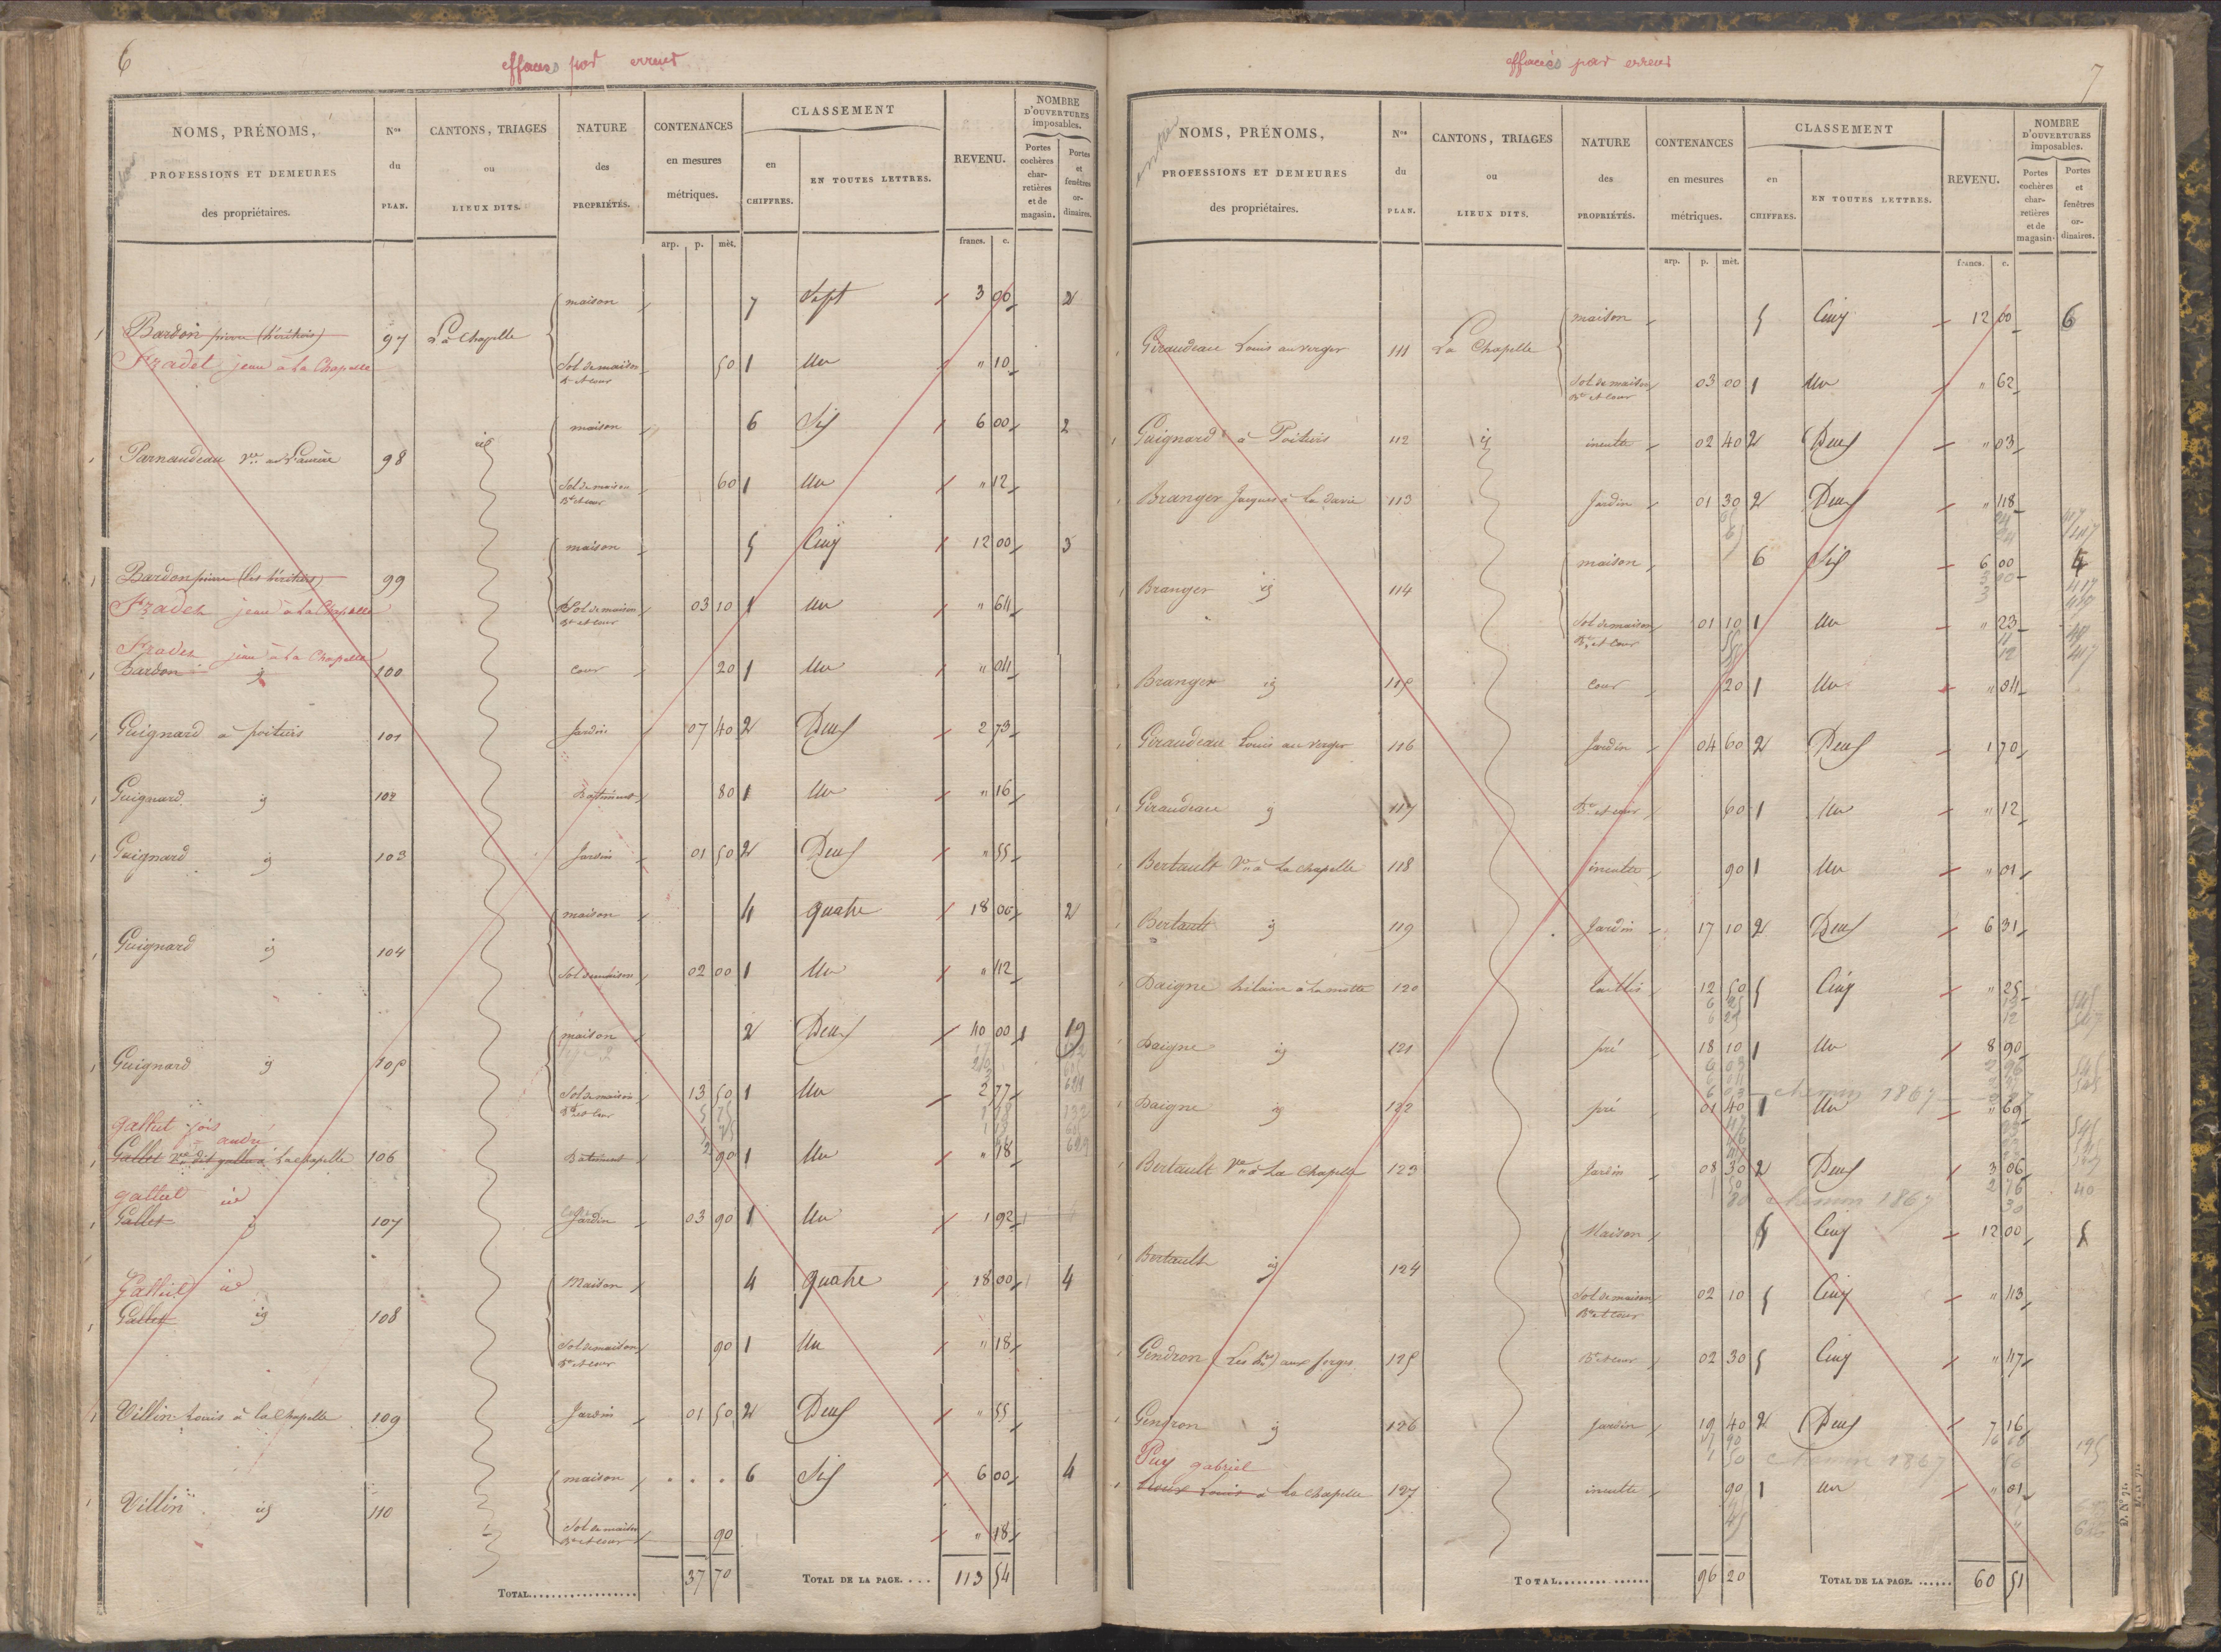 6
effacés par erreur
NOMS, PRÉNOMS, PROFESSIONS ET DEMEURES des propriétaires.
Nos du PLAN.
CANTONS, TRIAGES ou LIEUX DITS.
NATURE des PROPRIÉTÉS.
CONTENANCES en mesures métriques.
CLASSEMENT
en CHIFFRES.
EN TOUTES LETTRES.
REVENU.
NOMBRE D'OUVERTURES imposables.
Portes cochères charretières et de magasin.
Portes et fenêtres ordinaires.
arp. p. mèt. francs. c.
maison 7 Sept 3 00 2
Bardon pierre (héritiers) 97 La Chapelle
jean à la Chapelle Sol de maison 50 1 Un " 10
Bt et cour
maison 6 Six 6 00 2
98 id
Sol de maison 60 1 Un " 12
Bt et cour
maison 5 Cinq 12 00 3
Bardon pierre (les héritiers) 99
jean à la Chapelle Sol de maison 03 10 1 Un " 64
Bt et cour
jean à la Chapelle
Bardon id 100 Cour 20 1 Un " 04
Guignard à poitiers 101 Jardin 07 40 2 Deux 2 73
Guignard id 102 Bâtiment 80 1 Un " 16
Guignard id 103 Jardin 01 50 2 Deux " 55
maison 4 quatre 18 00 2
Guignard id 104
Sol de maison 02 00 1 Un " 42
maison 2 Deux 40 00 1 19
Guignard id 105
Sol de maison 13 50 1 Un 2 77
Bt et cour
andré
Gallet à la chapelle 106 Bâtiment 90 1 Un " 18
id
Gallet id 107 Jardin 03 90 1 Un 1 92
id Maison 4 quatre 18 00 4
Gallet id 108
Sol de maison 90 1 Un " 18
Bt et cour
Villin Louis à la Chapelle 109 Jardin 01 50 2 Deux " 55
maison . . . 6 Six 6 00 4
Villin id 110
Sol de maison 90 " 18
Bt et cour
TOTAL.................. 37 70 TOTAL DE LA PAGE.... 113 54
effacés par erreur
7
NOMS, PRÉNOMS, PROFESSIONS ET DEMEURES des propriétaires.
Nos du PLAN.
CANTONS, TRIAGES ou LIEUX DITS.
NATURE des PROPRIÉTÉS.
CONTENANCES en mesures métriques.
CLASSEMENT
en CHIFFRES.
EN TOUTES LETTRES.
REVENU.
NOMBRE D'OUVERTURES imposables.
Portes cochères charretières et de magasin.
Portes et fenêtres ordinaires.
arp. p. mèt. francs. c.
maison 5 Cinq 12 00 6
Giraudeau Louis au verger 111 La Chapelle
Sol de maison 03 00 1 Un " 62
Bt et Cour
Guignard à Poitiers 112 id inculte 02 40 2 Deux " 03
Branger Jacques à la 113 Jardin 01 30 2 Deux " 48
maison 6 Six 6 00 4
Branger id 114
Sol de maison 01 10 1 Un " 23
Bt et Cour
Branger id 115 Cour 20 1 Un " 04
Giraudeau Louis au verger 116 Jardin 04 60 2 Deux 1 70
Giraudeau id 117 Bt et cour 60 1 Un " 12
Bertault Ve à la chapelle 118 inculte 90 1 Un " 01
Bertault id 119 Jardin 17 10 2 Deux 6 31
Daigne hilaire à la motte 120 taillis 12 50 5 Cinq " 25
Daigne id 121 pré 18 10 1 Un 8 90
chemin 1867
Daigne id 122 pré 01 40 1 Un " 69
Bertault Ve à la Chapelle 123 Jardin 08 30 2 Deux 3 06
chemin 1867
Maison 5 Cinq 12 00 5
Bertault id 124
Sol de maison 02 10 5 Cinq " 43
Bt et Cour
Gendron (Les hers) aux forges 125 Bt et Cour 02 30 5 Cinq " 47
Gendron id 126 Jardin 19 40 2 Deux 7 16
Puy gabriel chemin 1867
Louis à la Chapelle 127 inculte 90 1 un " 01
TOTAL.............. 96 20 TOTAL DE LA PAGE...... 60 51
D. No 71.